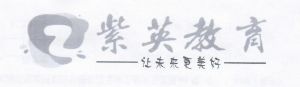 紫英教育
让未来更美好